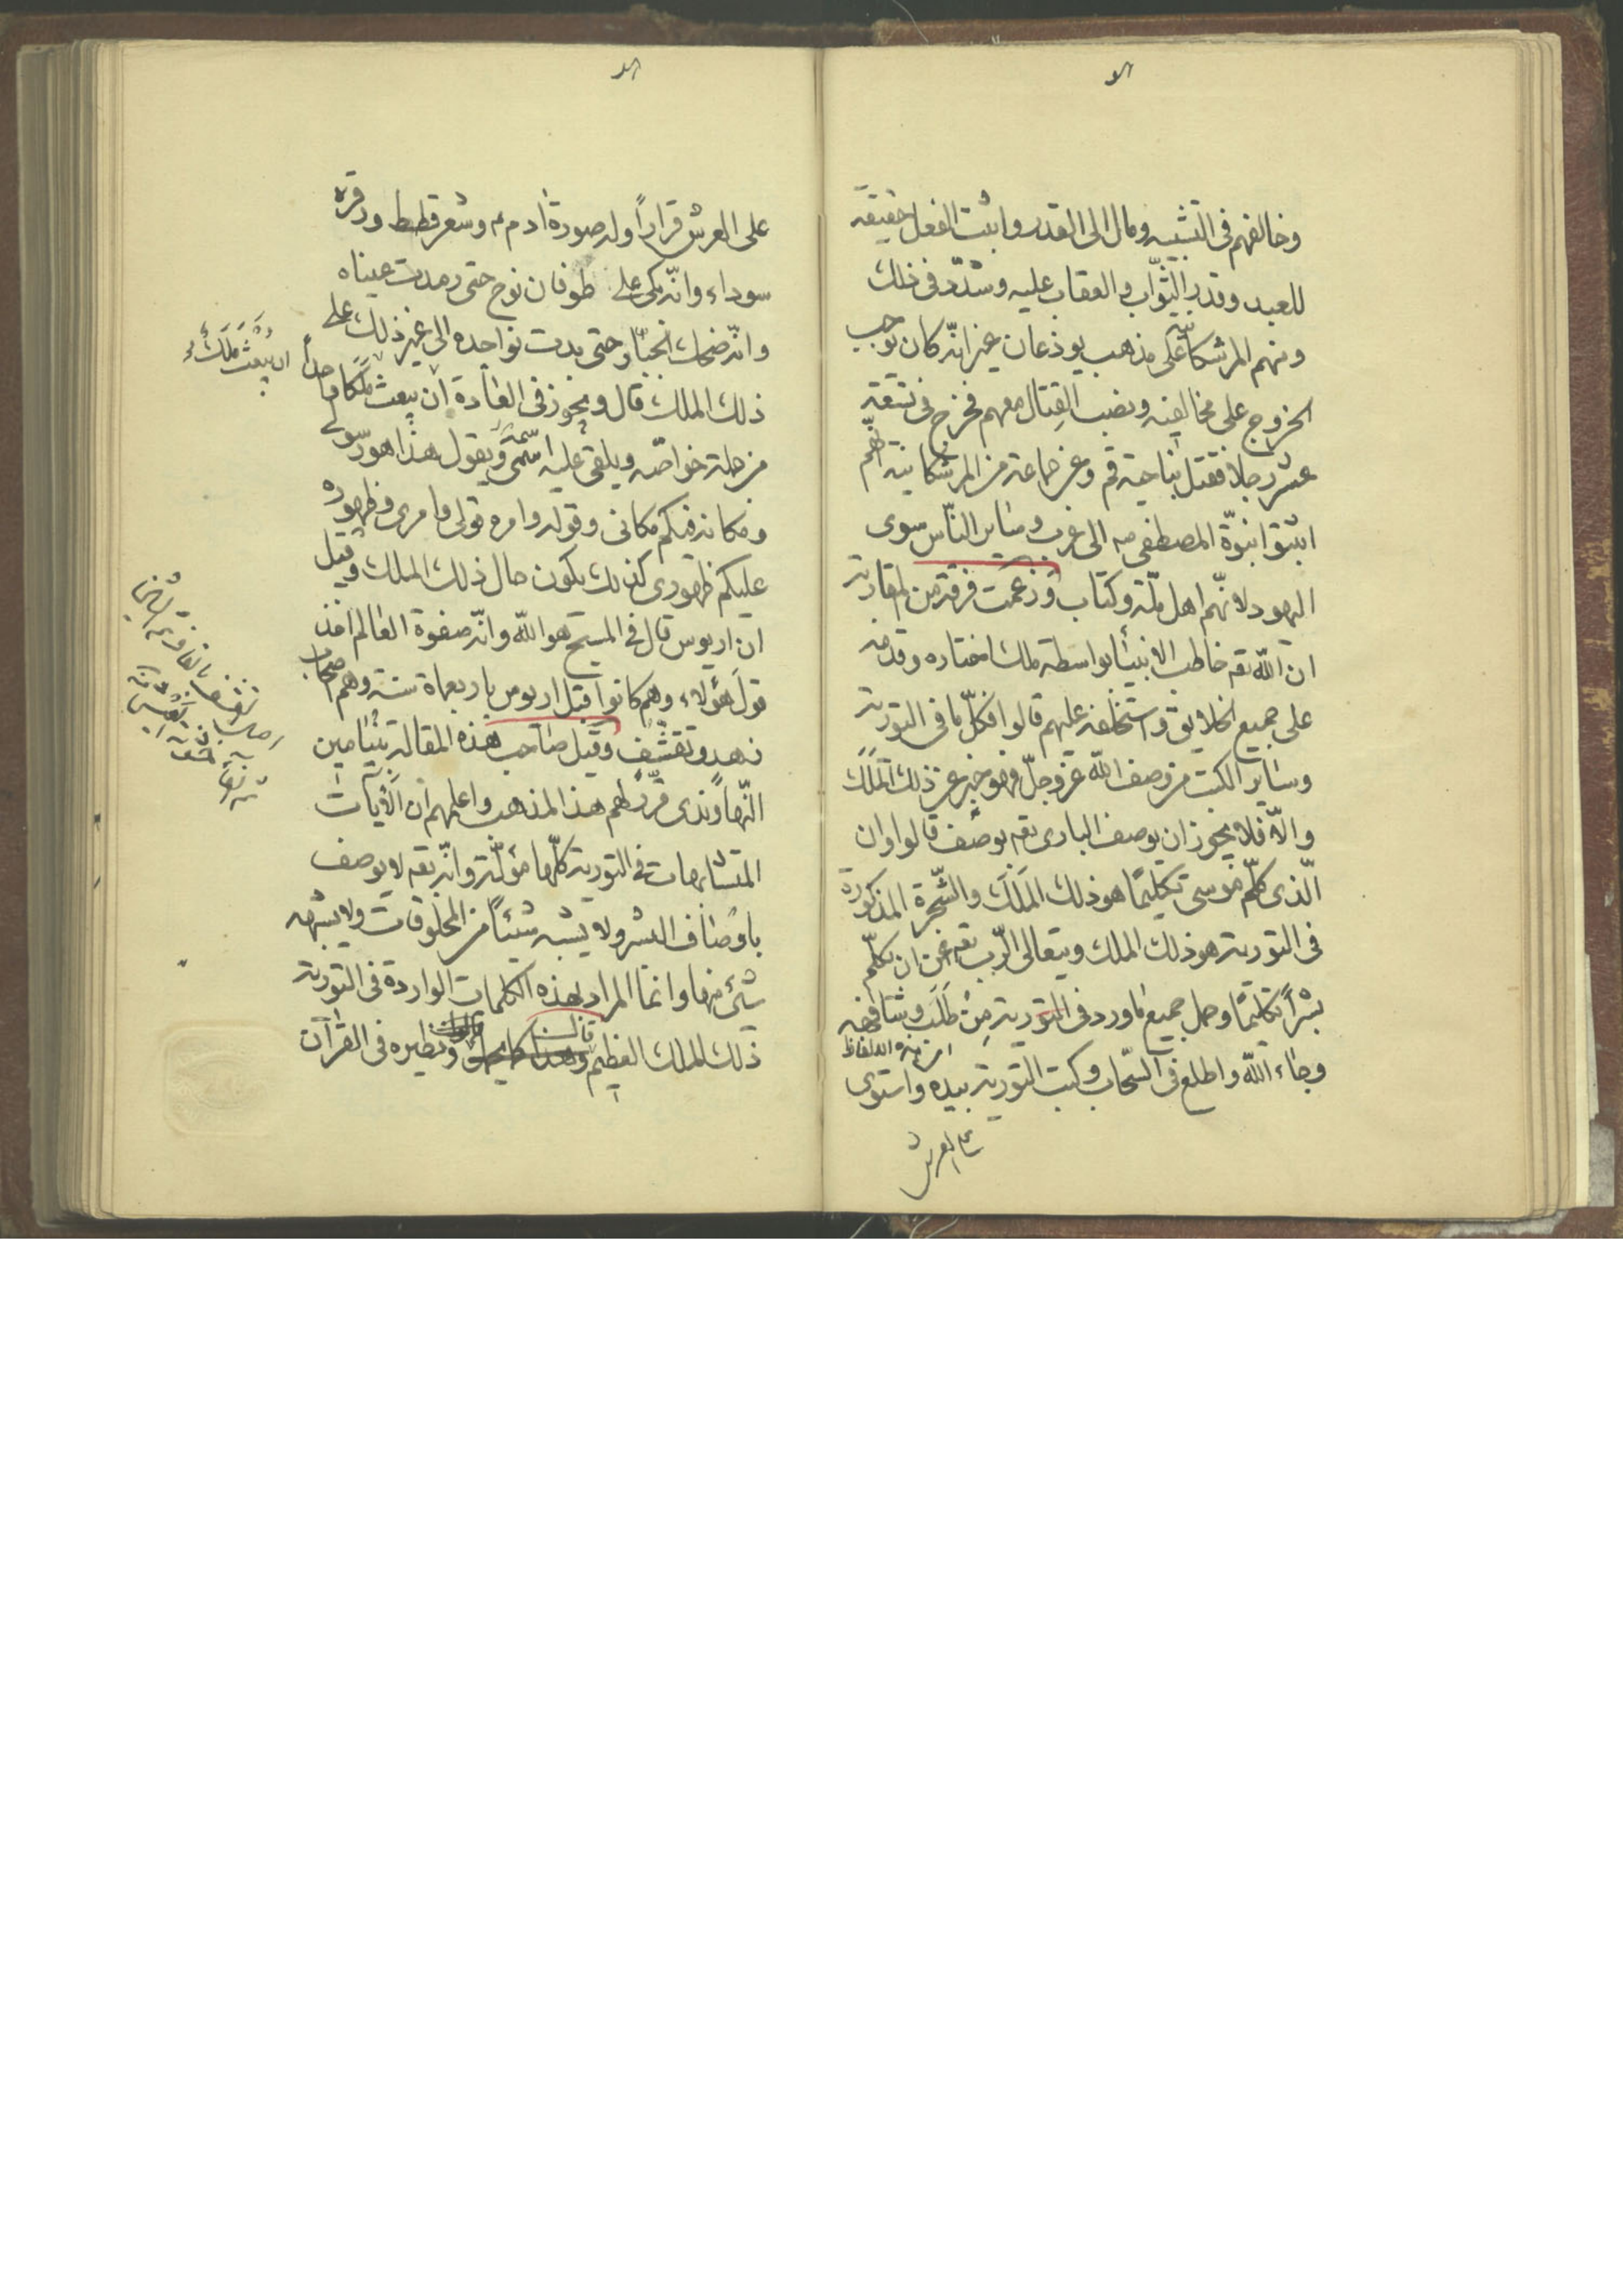 وخالفهم فى التشبيه ومال الى القدر واثبت الفعل حقيقة
للعبد وقدر الثواب والعقاب عليه وشدّد فى ذلك
ومنهم المرشكانية على مذهب يوذعان غير انّه كان يوجب
الخروج على مخالفيه ونصب القتال معهم فخرج فى تسعة
عشر رجلا فقتل بناحية قم وعن جماعة من المرشكانية انّهم
اثبتوا نبوّة المصطفى صه الى غرب وسائر الناس سوى
اليهود لانّهم اهل ملّة وكتاب وزعمت فرقة من المقاربة
ان الله تعه خاطب الانبياء بواسطة ملك اختاره وقدمه
على جميع الخلايق واستخلفه عليهم قالوا فكلّ ما فى التورية
وسائر الكتب من وصف الله عزّ وجلّ فهو خبر عن ذلك الملك
والّا فلا يجوز ان يوصف البارى تعه بوصف قالوا وان
الّذى كلّم موسى تكليمًا هو ذلك المَلَك والشّجرة المذكورة
فى التورية هو ذلك الملك ويتعالى الرّب تعه عن ان يكلّم
بشرًا تكليمًا وحمل جميع ما ورد فى التورية من طلب وشافهه
وجاء الله واطلع فى السّحاب وكتب التورية بيده واستوى
على العرش
على العرش قرارًا وله صورة ادم م وشعر قطط ووفرة
سوداء وانّه بكى على طوفان نوح حتى رمدت عيناه
وانّه ضحك الجبّار حتى بدت نواجده الى غير ذلك على
ذلك الملك قال ويجوز فى العادة ان يبعث ملكًا واحدًا
من جملة خواصّه ويلقى عليه اسمه ويقول هذا هو رسولى
ومكانه فيكم مكانى وقوله وامره قولى وامرى وظهوره
عليكم ظهورى كذلك يكون حال ذلك الملك وقيل
ان اريوس قال فى المسيح هو الله وانّه صفوة العالم اخذ
قول هؤلاء وهم كانوا قبل اريوس باربعمأة سنة وهم اصحاب
زهد وتقشّف وقيل صاحب هذه المقالة بنيامين
النّهاوندى قرّر لهم هذا المذهب واعلمهم ان الآيات
المتشابهات فى التورية كلّها مؤلّة وانّه تعه لا يوصف
باوصاف البشر ولا يشبه شيئًا من المخلوقات ولا يشبهه
شئ منها وانما المراد بهذه الكلمات الواردة فى التورية
ذلك الملك العظيم ونظيره فى القرآن